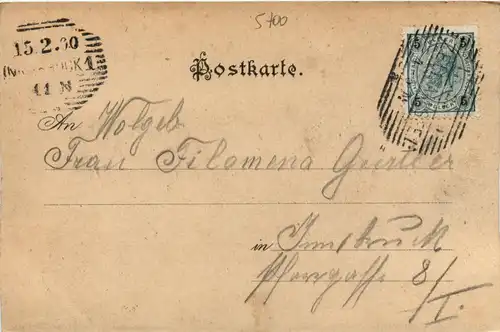 5400
15.2.00
INNSBRUCK 1
11 N
5 5
5 5
Postkarte.
An Wolgeb
Frau Filomena Gurtler
in Innsbruck
Pfarrgasse 8/I.